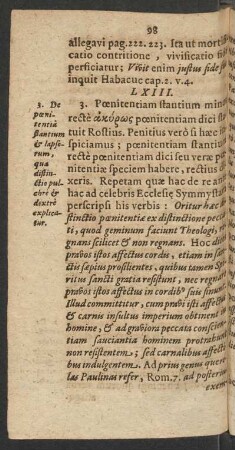 98
allegavi pag. 222. 223. Ita ut mort
catio contritione, vivificatio fi
perficiatur; Vivit enim justus fide
inquit Habacuc cap. 2. v. 4.
LXIII.
3. De
pœni-
tentiâ
stantium
& lapso-
rum,
quæ
distin-
ctio pul-
chrè &
dextrè
explica-
tur.
3. Pœnitentiam stantium minu
rectè ἀκύρως pœnitentiam dici st
tuit Rostius. Penitius verò si hæc
spiciamus; pœnitentiam stantiu
rectè pœnitentiam dici seu veræ
nitentiæ speciem habere, rectius d
xeris. Repetam quæ hac de re
hac ad celebris Ecclesiæ Symmysta
perscripsi his verbis: Oritur hæc
stinctio pœnitentiæ ex distinctione pecca
ti, quod geminum faciunt Theologi,
gnans scilicet & non regnans. Hoc di
pravos istos affectus cordis, etiam in san
ctis sæpius prosilientes, quibus tamen Sp
ritus sancti gratia resistunt, nec regna
pravos istos affectus in cordibus suis sinunt
Illud committitur, cum pravi isti affectus
& carnis insultus imperium obtinent
homine, & ad graviora peccata conscien
tiam sauciantia hominem protrahunt
non resistentem; sed carnalibus affecti
bus indulgentem. Ad prius genus que
las Paulinas refer, Rom. 7. ad posterius
exem